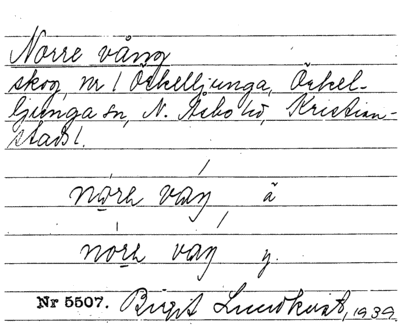 Norre vång
skog, nr 1 Örkelljunga, Örkel-
ljunga sn, N. Åsbo hd, Kristian-
stads l.
ä
y.
Nr 5507. Birgit Lundkvist, 1939